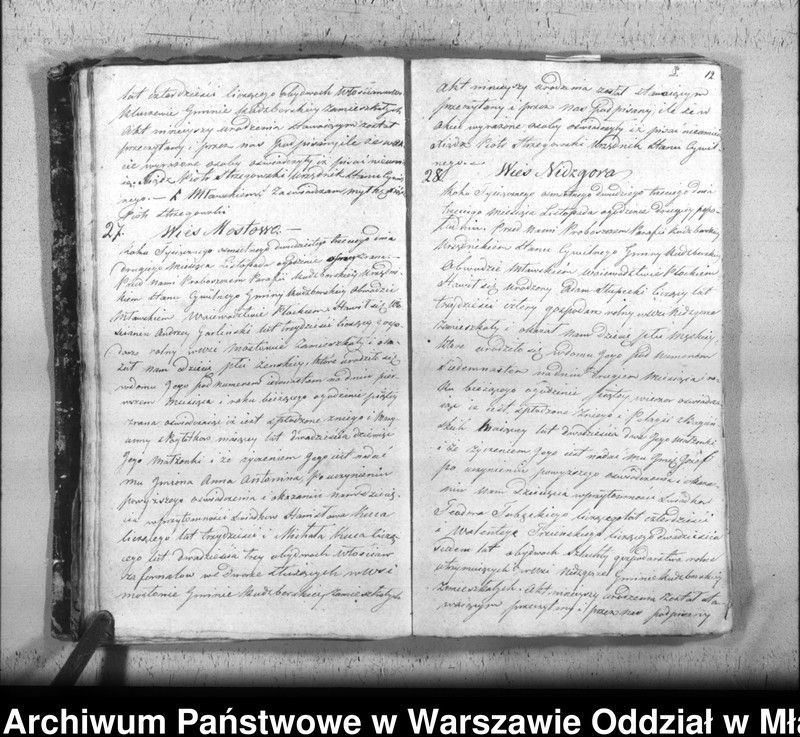 lat czterdzieści liczącego obydwoch Włościanow w
Gminie Kudzborskiey zamieszkałych
Akt ninieyszy urodzenia stawaiącym został
przeczytany i przez nas podpisany, ile że w ak-
cie wyrażone osoby oświadczyły iż pisać nieumie-
ią. Xiądz Piotr Strzegowski Urzędnik Stanu Cywil-
nego
Piotr Strzegowski
27. Wieś Mostowo
Roku Tysiącznego ośmsetnego dwudziestego trzeciego dnia
drugiego Miesiąca Listopada o godzinie
Przed Nami Proboszczem Parafii Kudzborskiey Urzędni-
kiem Stanu Cywilnego Gminy Kudzborskiey Obwodzie
Mławskiem Woiewodztwie Płockiem Stawił się Wło-
ścianin Andrzey Garliński lat trzydzieści liczący gospo-
darz rolny w wsi Mostowie zamieszkały i oka-
zał nam dziecię płci żenskiey, które urodziło się
w domu Jego pod numerem na dniu pier-
wszem Miesiąca i roku bieżącego o godzinie piątey
z rana oświadczaiąc iż iest spłodzone z niego i Mary-
anny lat dwadzieścia dziewięć
Jego Małżonki i że życzeniem Jego iest nadać
mu Imiona Anna Antonina, po uczynieniu
powyższego oświadczenia i okazaniu nam dzieci-
cia w przytomności Świadkow Stanisława Kuca
liczącego lat trzydzieści i Michała Kuca liczą-
cego lat dwadzieścia trzy obydwoch Włościan
za fornalow we dworze służących w wsi
Mostowie Gminie Kudzborskiey zamieszkałych
12
Akt ninieyszy urodzenia został stawaiącym
przeczytany i przez nas podpisany, ile że w
akcie wyrażone osoby oświadczyły iż pisać nieumieią
Xiądz Piotr Strzegowski Urzędnik Stanu Cywil-
nego
28. Wieś Nidzgora
Roku Tysiącznego ośmsetnego dwudziestego trzeciego dnia
trzeciego miesiąca Listopada o godzinie drugiey popo-
łudniu. Przed Nami Proboszczem Parafii Kudzborskiey
Urzędnikiem Stanu Cywilnego Gminy Kudzborskiey
Obwodzie Mławskiem Woiewodztwie Płockiem
Stawił się Urodzony Adam Słupecki liczący lat
trzydzieści cztery gospodarz rolny w wsi Nidzgorze
zamieszkały i okazał nam dziecię płci męzkiey,
które urodziło się w domu Jego pod numerem
siedemnastem na dniu drugiem Miesiąca ro-
ku bieżącego o godzinie piątey wieczor oświadcza-
iąc iż iest spłodzone z niego i Pelagii
lat dwadzieścia dwa Jego Małżonki
i że życzeniem Jego iest nadać mu Imię Józef
po uczynieniu powyższego oświadczenia i okaza-
niu nam Dziecięcia w przytomności Świadkow
Teodora liczącego lat czterdzieści
i Walentego liczącego dwadzieścia
siedem lat obydwoch Szlachty gospodarstwa rolne
w wsi Nidzgorze Gminie Kudzborskiey
zamieszkałych. Akt ninieyszy urodzenia został sta-
waiącym przeczytany i przez nas podpisany
Archiwum Państwowe w Warszawie Oddział w Mła